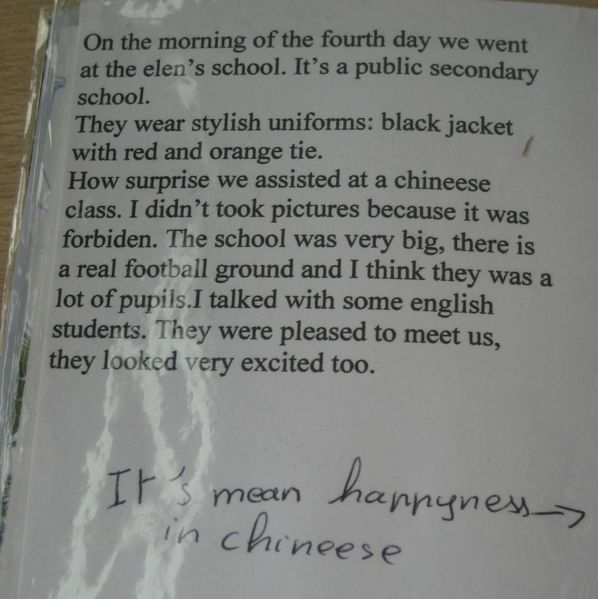 On the morning of the fourth day we went
at the elen's school. It's a public secondary
school.
They wear stylish uniforms: black jacket
with red and orange tie.
How surprise we assisted at a chineese
class. I didn't took pictures because it was
forbiden. The school was very big, there is
a real football ground and I think they was a
lot of pupils.I talked with some english
students. They were pleased to meet us,
they looked very excited too.
It's mean happyness →
in chineese